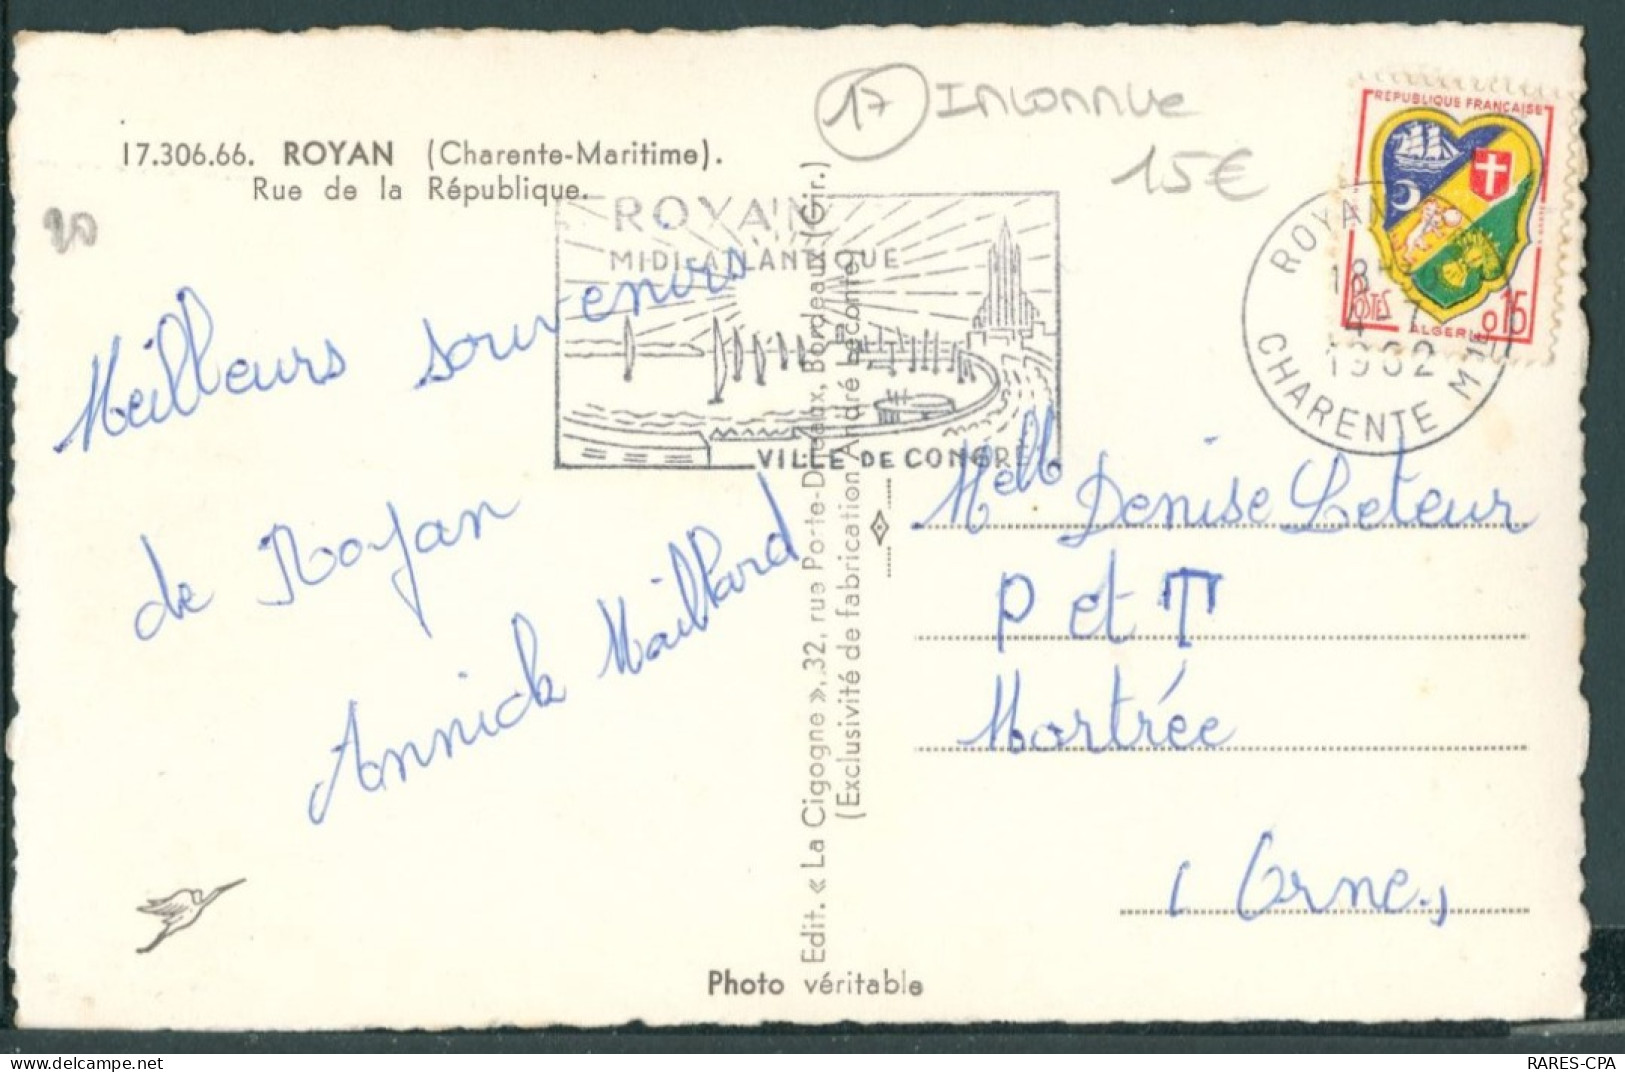 17 Inconnue
15€
17.306.66. ROYAN (Charente-Maritime).
Rue de la République.
20
ROYAN
MIDI-ATLANTIQUE
VILLE DE CONGRÈ
REPUBLIQUE FRANÇAISE
POSTES
ALGER
0,15
ROYAN
18
4-7
1962
CHARENTE MME
Meilleurs souvenirs
de Royan
Annick Maillard
Edit. « La Cigogne », 32, rue Porte-Dijeaux, Bordeaux (Gir.)
(Exclusivité de fabrication André Leconte)
Melle Denise Leteur
P et T
Mortrée
(Orne)
Photo véritable
RARES-CPA